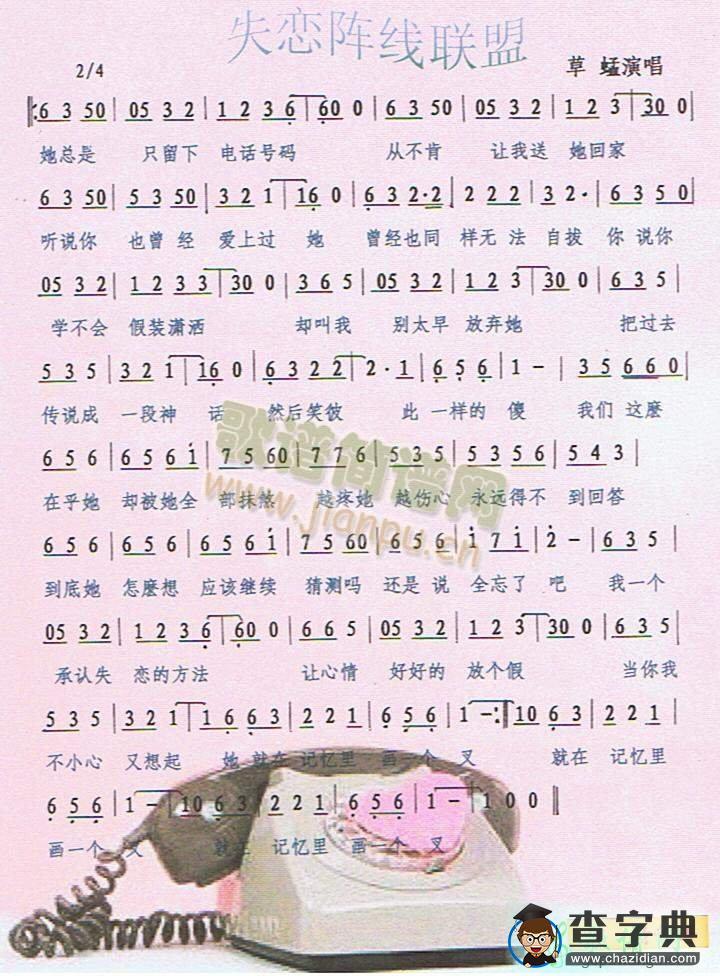 失恋阵线联盟
2/4
草 蜢演唱
6 3 50 | 05 3 2 | 1 2 3 6 | 60 0 | 6 3 50 | 05 3 2 | 1 2 3 | 30 0 |
她总是 只留下 电话号码 从不肯 让我送 她回家
6 3 50 | 5 3 50 | 3 2 1 | 16 0 | 6 3 2 2·2 | 2 2 2 | 3 2· | 6 3 5 0 |
听说你 也曾 经 爱上过 她 曾经也同 样无 法 自拔 你 说你
05 3 2 | 1 2 3 3 | 30 0 | 3 6 5 | 05 3 2 | 1 2 3 | 30 0 | 6 3 5 |
学不会 假装潇洒 却叫我 别太早 放弃她 把过去
5 3 5 | 3 2 1 | 16 0 | 6 3 2 2 | 2·1 | 6 5 6 | 1 - | 3 5 6 6 0 |
传说成 一段神 话 然后笑彼 此 一样的 傻 我们 这麽
6 5 6 | 6 5 6 1 | 7 5 60 | 7 7 6 | 5 3 5 | 5 3 5 6 | 5 4 3 |
在乎她 却被她全 部抹煞 越疼她 越伤心 永远得不 到回答
6 5 6 | 6 5 6 | 6 5 6 1 | 7 5 60 | 6 5 6 | 1 7 1 | 2 - | 6 3 5 |
到底她 怎麽想 应该继续 猜测吗 还是 说 全忘了 吧 我一个
05 3 2 | 1 2 3 6 | 60 0 | 6 6 5 | 05 3 2 | 1 2 3 | 30 0 | 6 3 5 |
承认失 恋的方法 让心情 好好的 放个假 当你我
5 3 5 | 3 2 1 | 1 6 6 3 | 2 2 1 | 6 5 6 | 1 - :| 10 6 3 | 2 2 1 |
不小心 又想起 她 就在 记忆里 画一个 叉 就在 记忆里
6 5 6 | 1 - | 10 6 3 | 2 2 1 | 6 5 6 | 1 - | 1 0 0 ‖
画一个 叉 就在 记忆里 画一个 叉
歌谱简谱网
www.jianpu.cn
查字典
www.chazidian.com